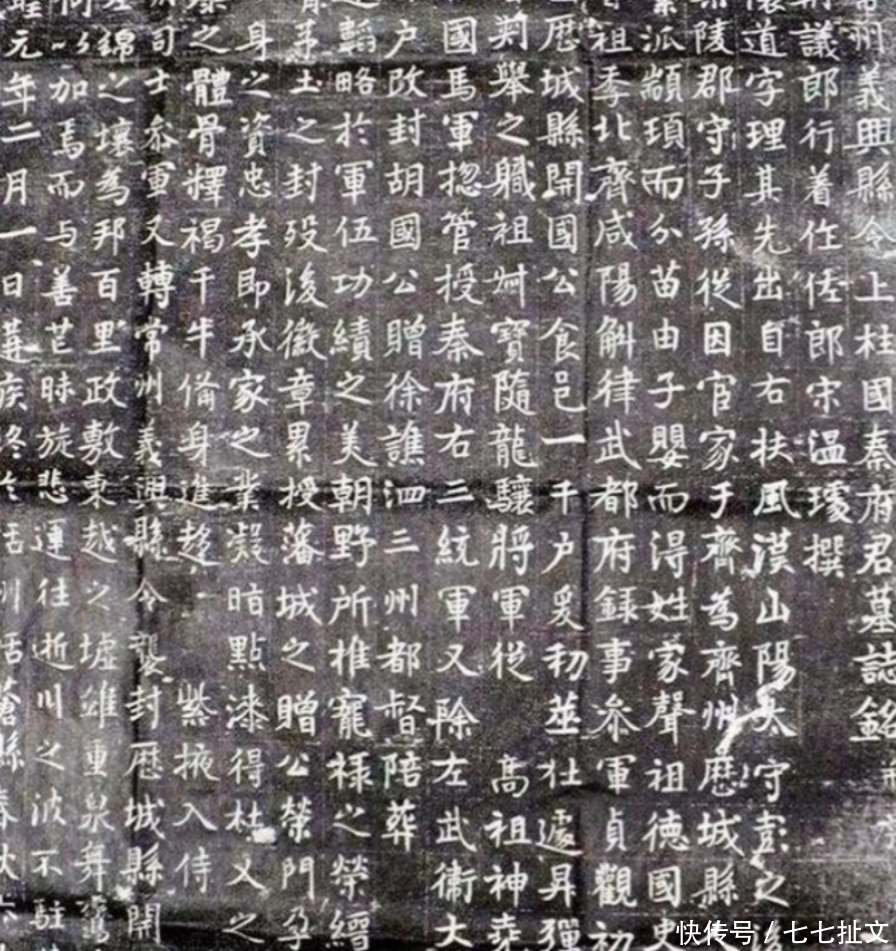 常州義興縣令上柱國秦府君墓誌銘
朝議郎行着作佐郎宋温璦撰
懷道字理其先出自右扶風漢山陽太守彭之
陵郡守子孫從因官家于齊為齊州歷城縣
派顓頊而分苗由子嬰而得姓家聲祖德國史
祖季北齊咸陽斛律武都府録事叅軍貞觀初
歷城縣開國公食邑一千户爰初莁仕遽昇彈
荆舉之職祖叔寳隨龍驤將軍從 高祖神堯
國馬軍揔管授秦府右三統軍又除左武衛大
户改封胡國公贈徐譙泗三州都督陪葬
韜略於軍伍功績之美朝野所推寵禄之榮縉
茅土之封殁後徽章累授藩城之贈公榮門孕
身之資忠孝即承家之業凝暗點漆得杜乂之
之體骨釋褐千牛俻身進趍 紫掖入侍
司士叅軍又轉常州義興縣令襲封歷城縣開
錦之壤為邦百里政敷東越之墟雄重泉舞鸞
加焉而与善芒昧旋悲運往逝川之波不駐
元年二月一日遘疾終於括州括蒼縣春秋六
快传号/七七扯文